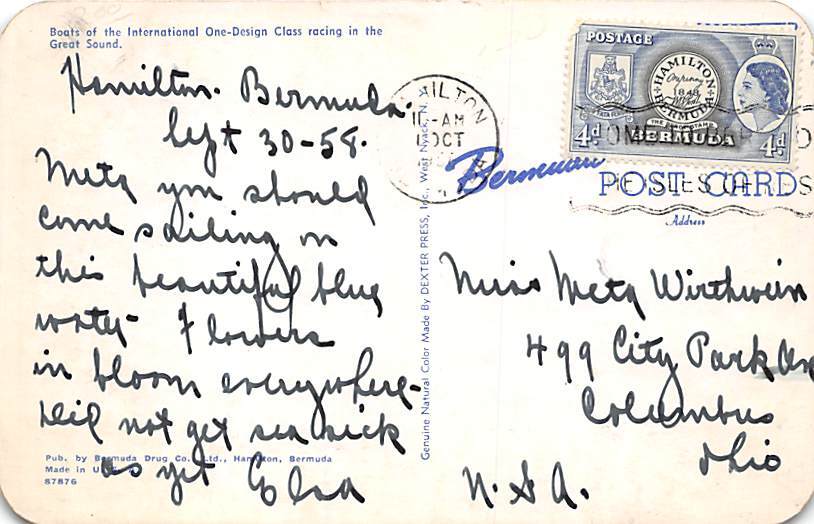 Boats of the International One-Design Class racing in the
Great Sound.
Hamilton. Bermuda.
Sept 30-58.
Meta you should
come sailing on
this beautiful blue
water- Flowers
in bloom everywhere-
Did not get sea sick
as yet Elsa
Pub. by Bermuda Drug Co., Ltd., Hamilton, Bermuda
Made in U.
87876
Genuine Natural Color Made By DEXTER PRESS, Inc., West Nyack, N. Y.
HAMILTON
AM
OCT
Bermuda
POSTAGE
HAMILTON
1848
BERMUDA
4d BERMUDA 4d
POST CARD
Address
Miss Meta Wirthwein
499 City Park Av
Columbus
Ohio
U.S.A.